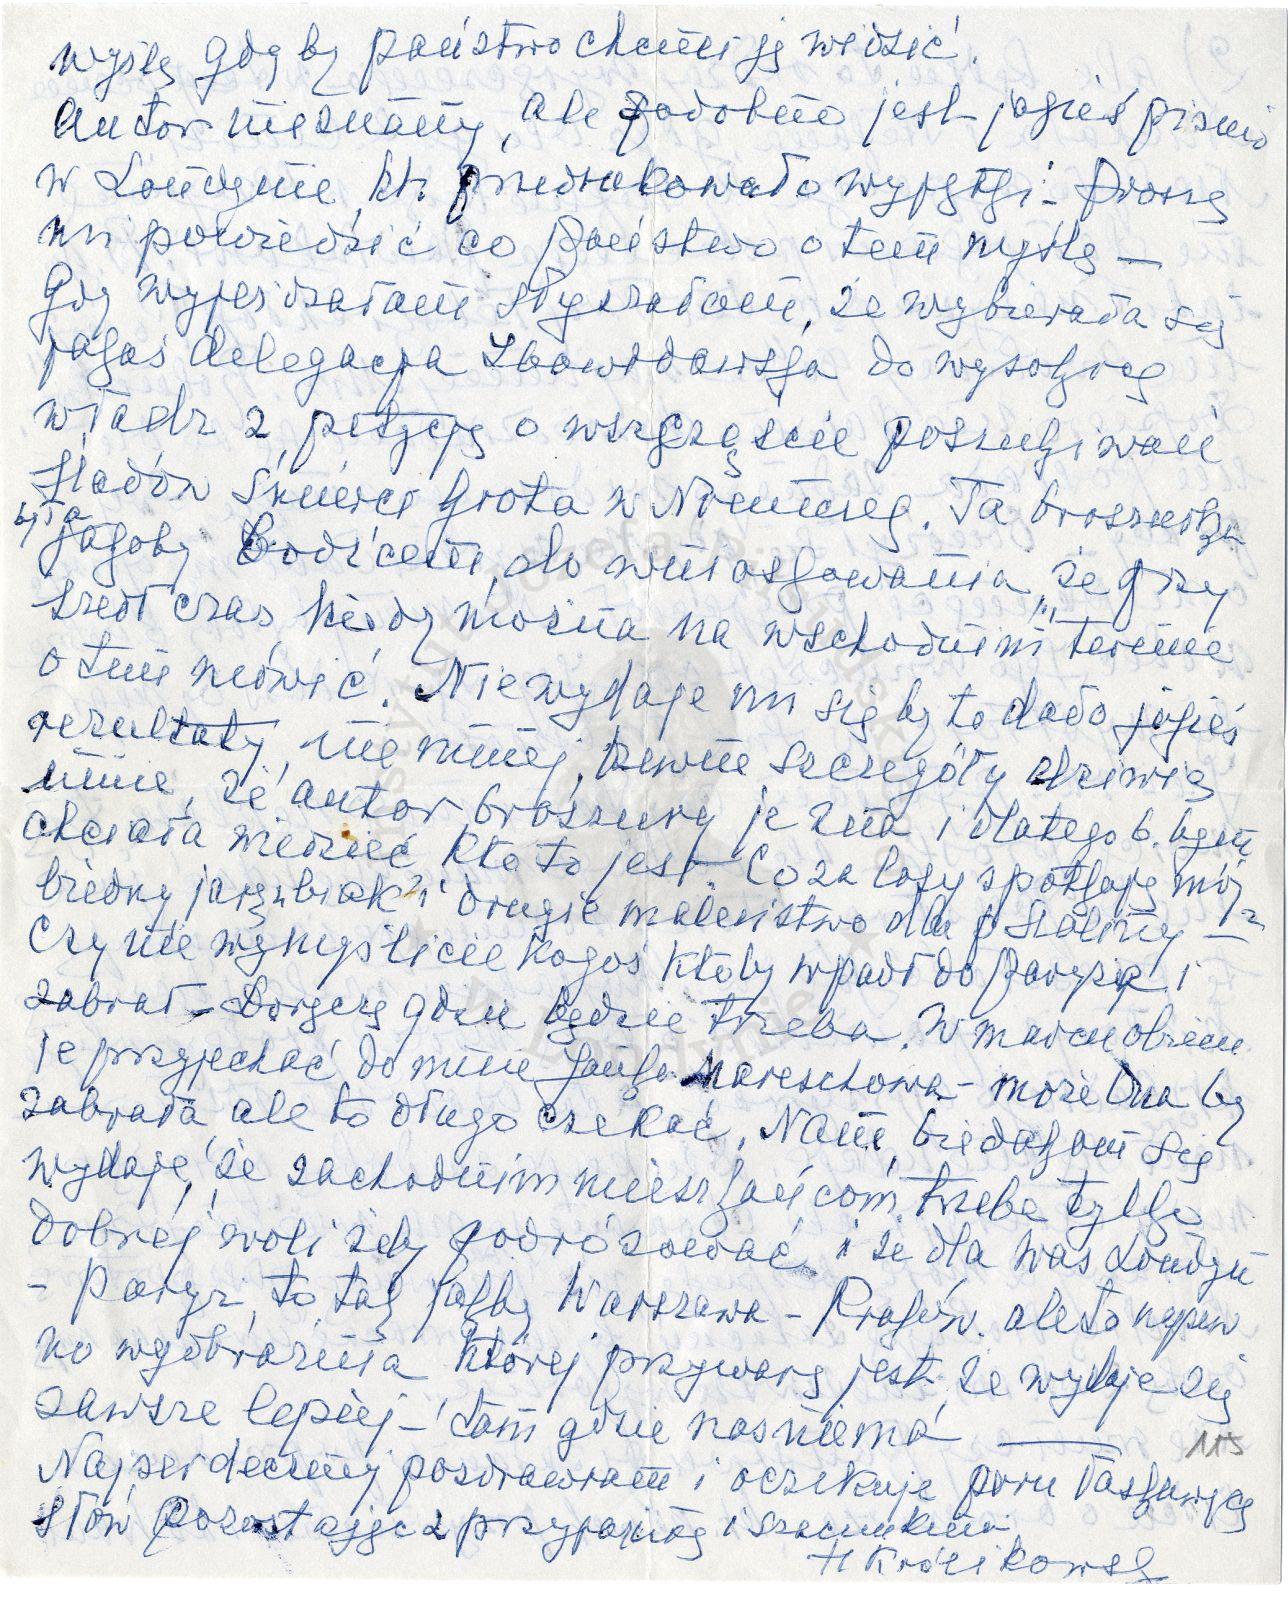 wyślę gdyby państwo chcieli ją widzieć.
Autor nieznany, ale podobno jest jakieś pismo
w Londynie, kt. przedrukowało wyjątki - proszę
mi powiedzieć co państwo o tem myślą —
Gdy wyjeżdżałam słyszałam, że wybierała się
jakaś delegacja Zbowidowska do wysokich
władz z petycją o wszczęcie poszukiwań
śladów śmierci Grota w Niemczech. Ta broszurka
była jakoby bodźcem do wnioskowania, że przy
szedł czas kiedy można na "wschodnim" terenie
o tem mówić. Nie wydaje mi się by to dało jakieś
rezultaty, nie mniej, pewne szczegóły dziwią
mnie, że autor broszury je zna i dlatego b. bym
chciała wiedzieć kto to jest. Co za losy spotkają mój
biedny jarzębiak i drugie maleństwo dla p Haliny —?
Czy nie wymyślicie kogoś któby wpadł do Paryża i
zabrał - Doręczę gdzie będzie trzeba. W marcu obieca
je przyjechać do mnie Janka Mareschowa - może Ona by
zabrała ale to długo czekać. Nam, biedakom się
wydaje, że zachodnim mieszkańcom trzeba tylko
dobrej woli żeby podróżować i że dla Was Londyn
- Paryż, to tak jakby Warszawa - Kraków. ale to napew
no wyobraźnia której przywarą jest że wydaje się
zawsze lepiej - tam gdzie nas niema —
115
Najserdeczniej pozdrawiam i oczekuję paru łaskawych
słów pozostając z przyjaźnią i szacunkiem
H Królikowska